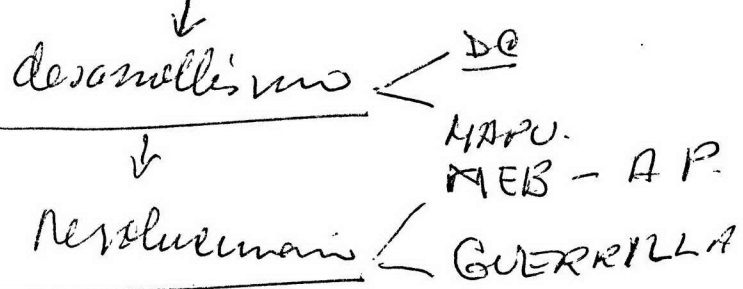 ↓
desarrollismo < DC
MAPU.
↓
MEB - A P.
Revolucionario <
GUERRILLA